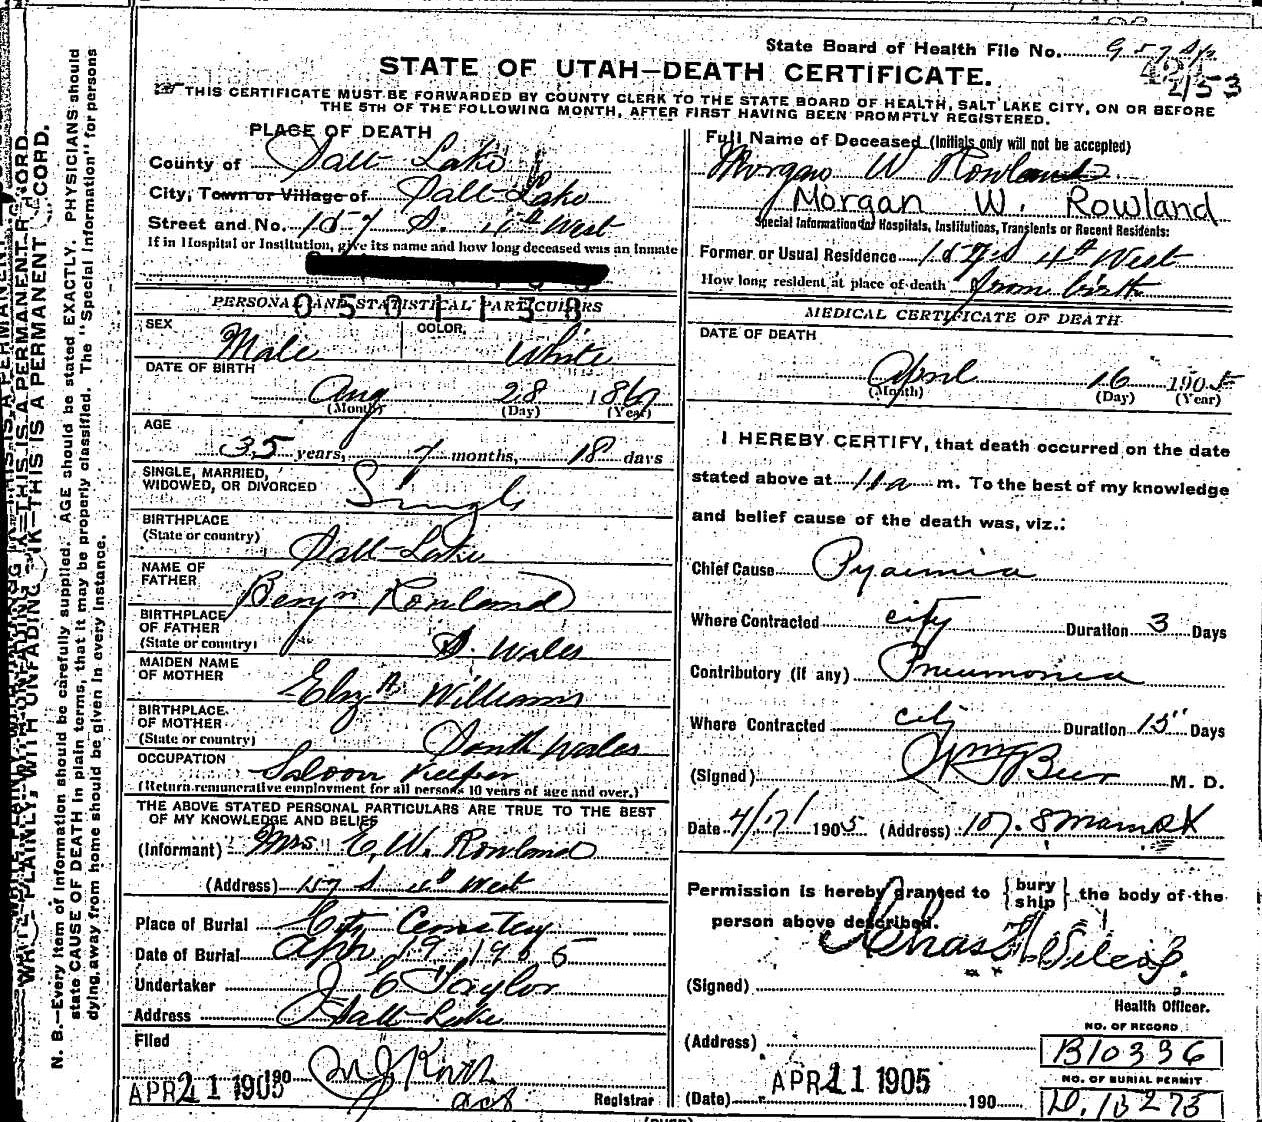 State Board of Health File No.
STATE OF UTAH—DEATH CERTIFICATE.
THIS CERTIFICATE MUST BE FORWARDED BY COUNTY CLERK TO THE STATE BOARD OF HEALTH, SALT LAKE CITY, ON OR BEFORE
THE 5TH OF THE FOLLOWING MONTH, AFTER FIRST HAVING BEEN PROMPTLY REGISTERED.
WRITE PLAINLY, WITH UNFADING INK—THIS IS A PERMANENT RECORD.
N. B.—Every item of Information should be carefully supplied. AGE should be stated EXACTLY. PHYSICIANS should
state CAUSE OF DEATH in plain terms, that it may be properly classified. The "Special Information" for persons
dying away from home should be given in every instance.
PLACE OF DEATH
County of Salt Lake
City, Town or Village of Salt Lake
Street and No. 157 S. 4th West
If in Hospital or Institution, give its name and how long deceased was an Inmate
PERSONAL AND STATISTICAL PARTICULARS
0501158
SEX Male COLOR White
DATE OF BIRTH
Aug 28 1869
(Month) (Day) (Year)
AGE
35 years, 7 months, 18 days
SINGLE, MARRIED,
WIDOWED, OR DIVORCED Single
BIRTHPLACE
(State or country) Salt Lake
NAME OF
FATHER Benj Rowland
BIRTHPLACE
OF FATHER
(State or country) S. Wales
MAIDEN NAME
OF MOTHER Elizh Williams
BIRTHPLACE
OF MOTHER
(State or country) South Wales
OCCUPATION Saloon Keeper
(Return remunerative employment for all persons 10 years of age and over.)
THE ABOVE STATED PERSONAL PARTICULARS ARE TRUE TO THE BEST
OF MY KNOWLEDGE AND BELIEF
(Informant) Mrs E. W. Rowland
(Address) 157 S 4th West
Place of Burial City Cemetery
Date of Burial Apr 19 1905
Undertaker J E Taylor
Address Salt Lake
Filed
APR 21 1905 190
Registrar
Full Name of Deceased (Initials only will not be accepted)
Morgan W Rowland
Morgan W. Rowland
Special Information for Hospitals, Institutions, Transients or Recent Residents:
Former or Usual Residence 157 S 4th West
How long resident at place of death from birth
MEDICAL CERTIFICATE OF DEATH
DATE OF DEATH
April 16 1905
(Month) (Day) (Year)
I HEREBY CERTIFY, that death occurred on the date
stated above at 11 a m. To the best of my knowledge
and belief cause of the death was, viz.:
Chief Cause Pyaemia
Where Contracted city Duration 3 Days
Contributory (if any) Pneumonia
Where Contracted city Duration 15 Days
(Signed) Beer M. D.
Date 4/17/1905 (Address) 107. S Main St
Permission is hereby granted to {bury
ship} the body of the
person above described.
(Signed) Chas
Health Officer.
(Address)
NO. OF RECORD
B10336
APR 21 1905
(Date) 190
NO. OF BURIAL PERMIT
D. 13273